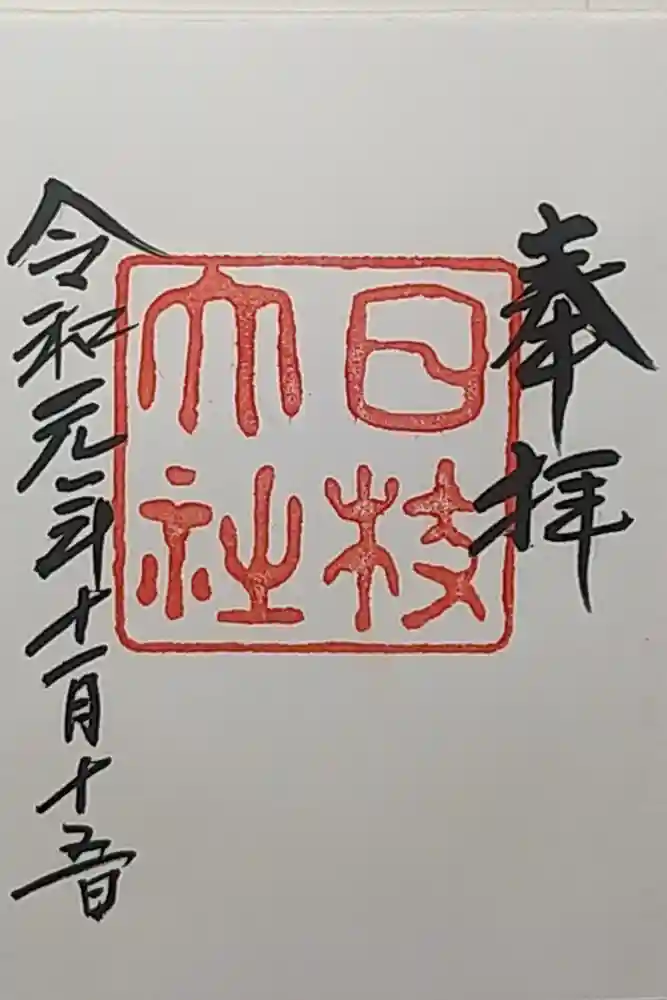 奉拝
日枝
大社
令和元年十一月十五日